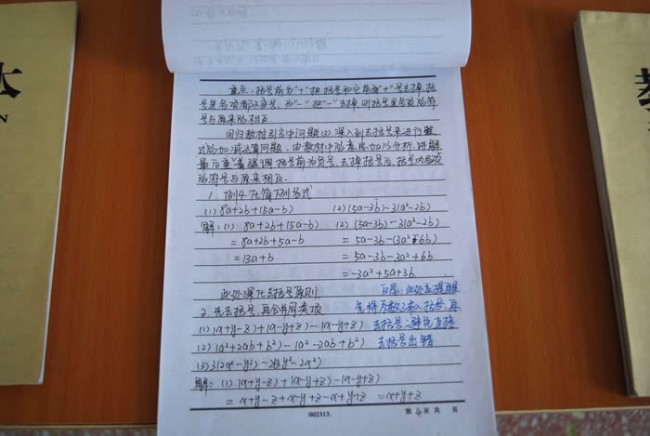 重点:括号前为"+"把括号和它前面"+"号去掉,括
号里各项都不变号,为"-"把"-"去掉则括号里各项的符
号与原来的相反.
回归教材引言中问题(2),深入到去括号来进行整
式的加减运算问题.
最后重点强调,括号前为负号,去掉括号后,括号内各项
的符号与原来相反.
1. 例4.化简下列各式
(1) 8a+2b+(5a-b) (2) (5a-3b)-3(a²-2b)
解:(1) 8a+2b+(5a-b) (2) (5a-3b)-3(a²-2b)
=8a+2b+5a-b =5a-3b-(3a²-6b)
=13a+b =5a-3b-3a²+6b
=-3a²+5a+3b
此处深化去括号原则
2. 先去括号,再合并同类项
先将系数乘入括号,再
(1) (x+y-z)+(x-y+z)-(x-y+z) 去括号,避免直接
(2) (a²+2ab+b²)-(a²-2ab+b²) 去括号出错
(3) 3(2x²-y²)-2(3y²-2x²)
解:(1) (x+y-z)+(x-y+z)-(x-y+z)
=x+y-z+x-y+z-x+y+z =x+y+z
002515. 第4页 共 页
本
N
教